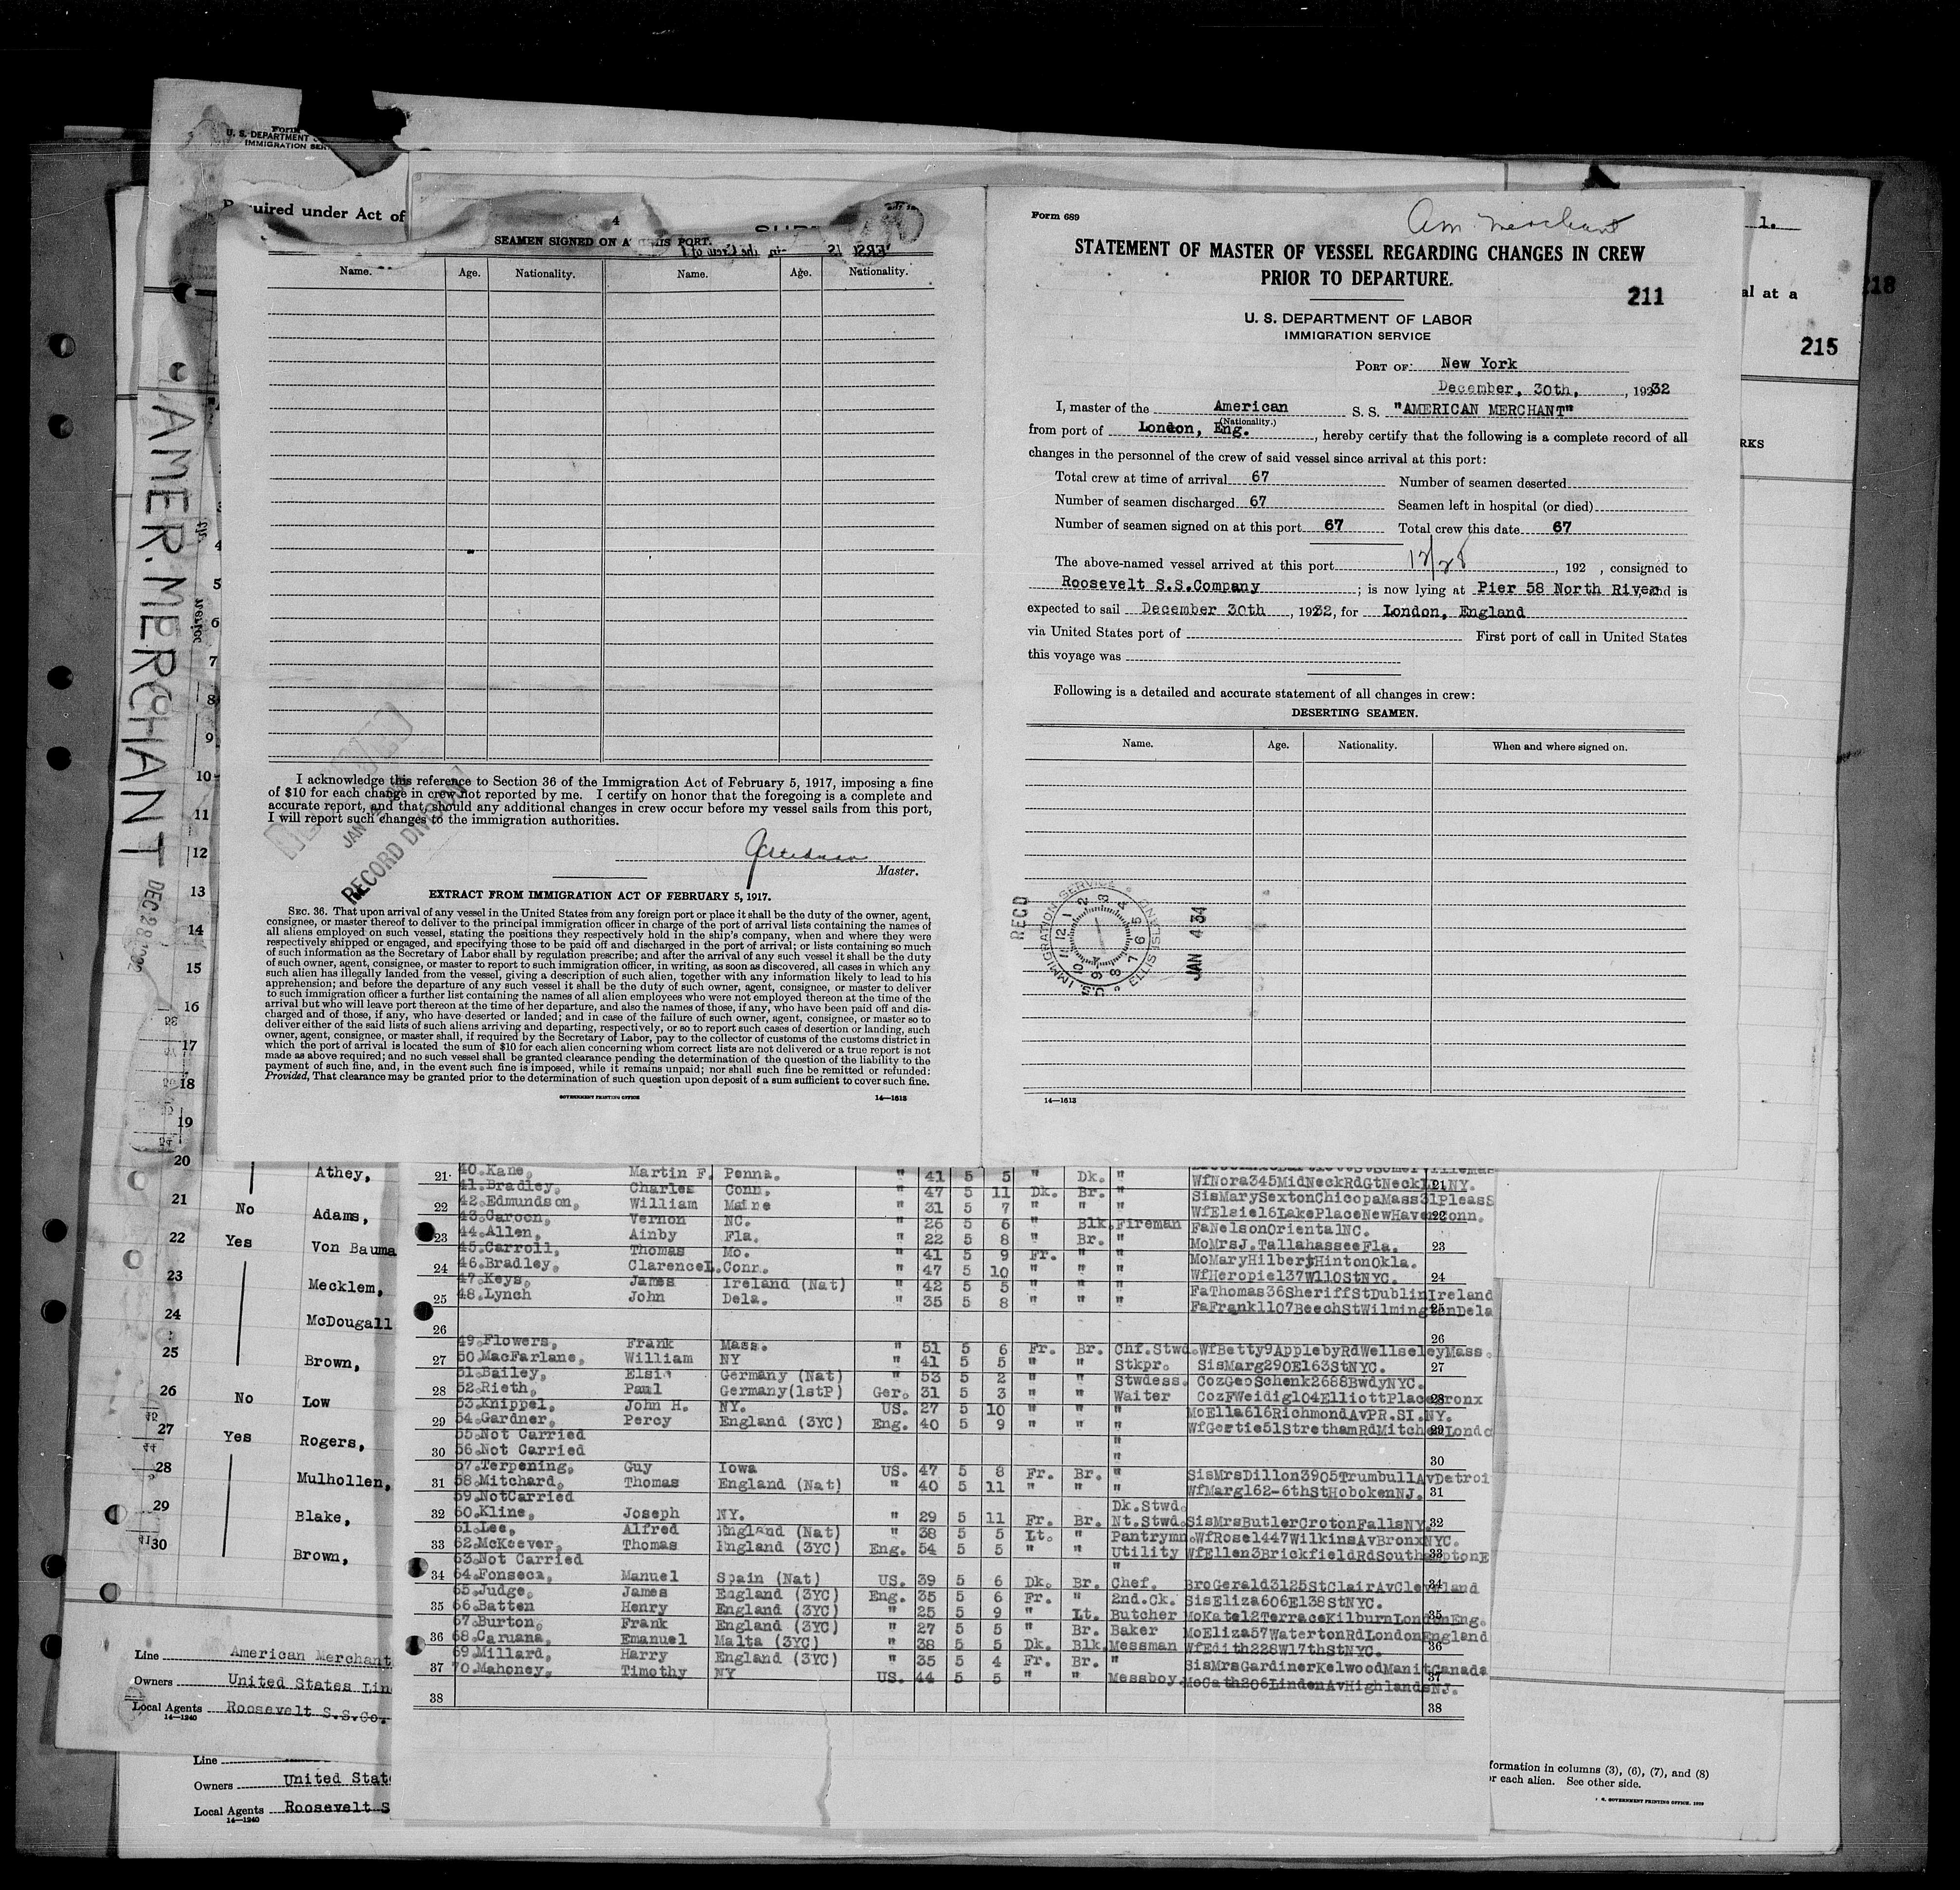 Form
U. S. DEPARTMENT
IMMIGRATION SER
Required under Act of
4
SEAMEN SIGNED ON AT THIS PORT.
Name. Age. Nationality. Name. Age. Nationality.
I acknowledge this reference to Section 36 of the Immigration Act of February 5, 1917, imposing a fine
of $10 for each change in crew not reported by me. I certify on honor that the foregoing is a complete and
accurate report, and that, should any additional changes in crew occur before my vessel sails from this port,
I will report such changes to the immigration authorities.
Master.
RECORD DIVISION
EXTRACT FROM IMMIGRATION ACT OF FEBRUARY 5, 1917.
SEC. 36. That upon arrival of any vessel in the United States from any foreign port or place it shall be the duty of the owner, agent,
consignee, or master thereof to deliver to the principal immigration officer in charge of the port of arrival lists containing the names of
all aliens employed on such vessel, stating the positions they respectively hold in the ship's company, when and where they were
respectively shipped or engaged, and specifying those to be paid off and discharged in the port of arrival; or lists containing so much
of such information as the Secretary of Labor shall by regulation prescribe; and after the arrival of any such vessel it shall be the duty
of such owner, agent, consignee, or master to report to such immigration officer, in writing, as soon as discovered, all cases in which any
such alien has illegally landed from the vessel, giving a description of such alien, together with any information likely to lead to his
apprehension; and before the departure of any such vessel it shall be the duty of such owner, agent, consignee, or master to deliver
to such immigration officer a further list containing the names of all alien employees who were not employed thereon at the time of the
arrival but who will leave port thereon at the time of her departure, and also the names of those, if any, who have been paid off and dis-
charged and of those, if any, who have deserted or landed; and in case of the failure of such owner, agent, consignee, or master so to
deliver either of the said lists of such aliens arriving and departing, respectively, or so to report such cases of desertion or landing, such
owner, agent, consignee, or master shall, if required by the Secretary of Labor, pay to the collector of customs of the customs district in
which the port of arrival is located the sum of $10 for each alien concerning whom correct lists are not delivered or a true report is not
made as above required; and no such vessel shall be granted clearance pending the determination of the question of the liability to the
payment of such fine, and, in the event such fine is imposed, while it remains unpaid; nor shall such fine be remitted or refunded:
Provided, That clearance may be granted prior to the determination of such question upon deposit of a sum sufficient to cover such fine.
GOVERNMENT PRINTING OFFICE 14—1613
Form 689
Am Merchant
STATEMENT OF MASTER OF VESSEL REGARDING CHANGES IN CREW
PRIOR TO DEPARTURE.
211
U. S. DEPARTMENT OF LABOR
IMMIGRATION SERVICE
PORT OF New York
December, 30th, , 19232
I, master of the American S. S. "AMERICAN MERCHANT"
(Nationality.)
from port of London, Eng. , hereby certify that the following is a complete record of all
changes in the personnel of the crew of said vessel since arrival at this port:
Total crew at time of arrival 67 Number of seamen deserted
Number of seamen discharged 67 Seamen left in hospital (or died)
Number of seamen signed on at this port 67 Total crew this date 67
The above-named vessel arrived at this port 12/28 , 192 , consigned to
Roosevelt S.S.Company ; is now lying at Pier 58 North River and is
expected to sail December 30th , 1932, for London, England
via United States port of First port of call in United States
this voyage was
Following is a detailed and accurate statement of all changes in crew:
DESERTING SEAMEN.
Name. Age. Nationality. When and where signed on.
RECD
U.S. IMMIGRATION SERVICE ELLIS ISLAND
JAN 4
14—1613
1.
al at a
218
215
RKS
AMER. MERCHANT
DEC 28
4
5
6
7
8
9
10
11
12
13
14
15
16
17
18
19
20 Athey,
21 No Adams,
22 Yes Von Bauma
23 Mecklem,
24 McDougall
25 Brown,
26 No Low
27 Yes Rogers,
28 Mulhollen,
29 Blake,
30 Brown,
Line American Merchant
Owners United States Lin
Local Agents Roosevelt S.S.Co.
14—1240
Line
Owners United Stat
Local Agents Roosevelt S
14—1240
21 40.Kane, Martin F. Penna. " 41 5 5 " Dk. " WfNora345MidNeckRdGtNeckLINY. 21
41.Bradley, Charles Conn. " 47 5 11 Dk. Br. " SisMarySextonChicopaMass31PleasS
22 42.Edmundson, William Maine " 31 5 7 " " " WfElsie16LakePlaceNewHavenConn. 22
43.Caroon, Vernon NC. " 26 5 6 " Blk. Fireman FaNelsonOrientalNC.
23 44.Allen, Ainby Fla. " 22 5 8 " Br. " MoMrsJ.TallahasseeFla. 23
45.Carroll, Thomas Mo. " 41 5 9 Fr. " " MoMaryHilbertHintonOkla.
24 46.Bradley, ClarenceL. Conn. " 47 5 10 " " " WfHeropie137W110StNYC. 24
47.Keys, James Ireland (Nat) " 42 5 5 " " " FaThomas36SheriffStDublinIreland
25 48.Lynch John Dela. " 35 5 8 " " " FaFrank1107BeechStWilmingtonDela 25
26 26
49.Flowers, Frank Mass. " 51 5 6 Fr. Br. Chf.Stwd. WfBetty9ApplebyRdWellseleyMass.
27 50.MacFarlane, William NY " 41 5 5 " " Stkpr. SisMarg290E163StNYC. 27
51.Bailey, Elsie Germany (Nat) " 53 5 2 " " Stwdess. CozGeoSchenk2688BwdyNYC.
28 52.Rieth, Paul Germany(1stP) Ger. 31 5 3 " " Waiter CozFWeidig104ElliottPlaceBronx 28
53.Knippel, John H. NY. US. 27 5 10 " " " MoElla616RichmondAvPR.SI.NY.
29 54.Gardner, Percy England (3YC) Eng. 40 5 9 " " " WfGertie51StrethamRdMitcheLondo 29
55.Not Carried "
30 56.Not Carried " 30
57.Terpening, Guy Iowa US. 47 5 8 Fr. Br. " SisMrsDillon3905TrumbullAvDetroi
31 58.Mitchard, Thomas England (Nat) " 40 5 11 " " " WfMarg162-6thStHobokenNJ. 31
59.NotCarried Dk.Stwd.
32 60.Kline, Joseph NY. " 29 5 11 Fr. Br. Nt.Stwd. SisMrsButlerCrotonFallsNY. 32
61.Lee, Alfred England (Nat) " 38 5 5 Lt. " Pantrymn. WfRose1447WilkinsAvBronxNYC.
33 62.McKeever, Thomas England (3YC) Eng. 54 5 5 " " Utility WfEllen3BrickfieldRdSouthamptonE 33
63.Not Carried "
34 64.Fonseca, Manuel Spain (Nat) US. 39 5 6 Dk. Br. Chef. BroGerald3125StClairAvCleveland 34
65.Judge, James England (3YC) Eng. 35 5 6 Fr. " 2nd.Ck. SisEliza606E138StNYC.
35 66.Batten Henry England (3YC) " 25 5 9 " Lt. Butcher MoKate12TerraceKilburnLondonEng. 35
67.Burton, Frank England (3YC) " 27 5 5 " Br. Baker MoEliza57WatertonRdLondonEngland
36 68.Caruana, Emanuel Malta (3YC) " 38 5 5 Dk. Blk. Messman WfEdith228W17thStNYC. 36
69.Millard, Harry England (3YC) " 35 5 4 Fr. Br. " SisMrsGardinerKelwoodManitCanada
37 70.Mahoney, Timothy NY US. 44 5 5 " " Messboy. MoCath206LindenAvHighlandsNJ. 37
38 38
formation in columns (3), (6), (7), and (8)
or each alien. See other side.
U. S. GOVERNMENT PRINTING OFFICE. 1929